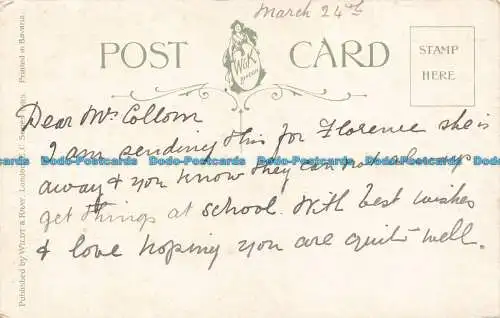 March 24th
POST CARD
W&K
LONDON
STAMP
HERE
Published by WILDT & KRAY, London, E.C. Printed in Bavaria.
Dear Mrs Collom
I am sending this for Florence she is
Dodo-Postcards Dodo-Postcards Dodo-Postcards Dodo-Postcards Dodo-Postcards
away & you know they can not always
get things at school. With best wishes
& love hoping you are quite well.